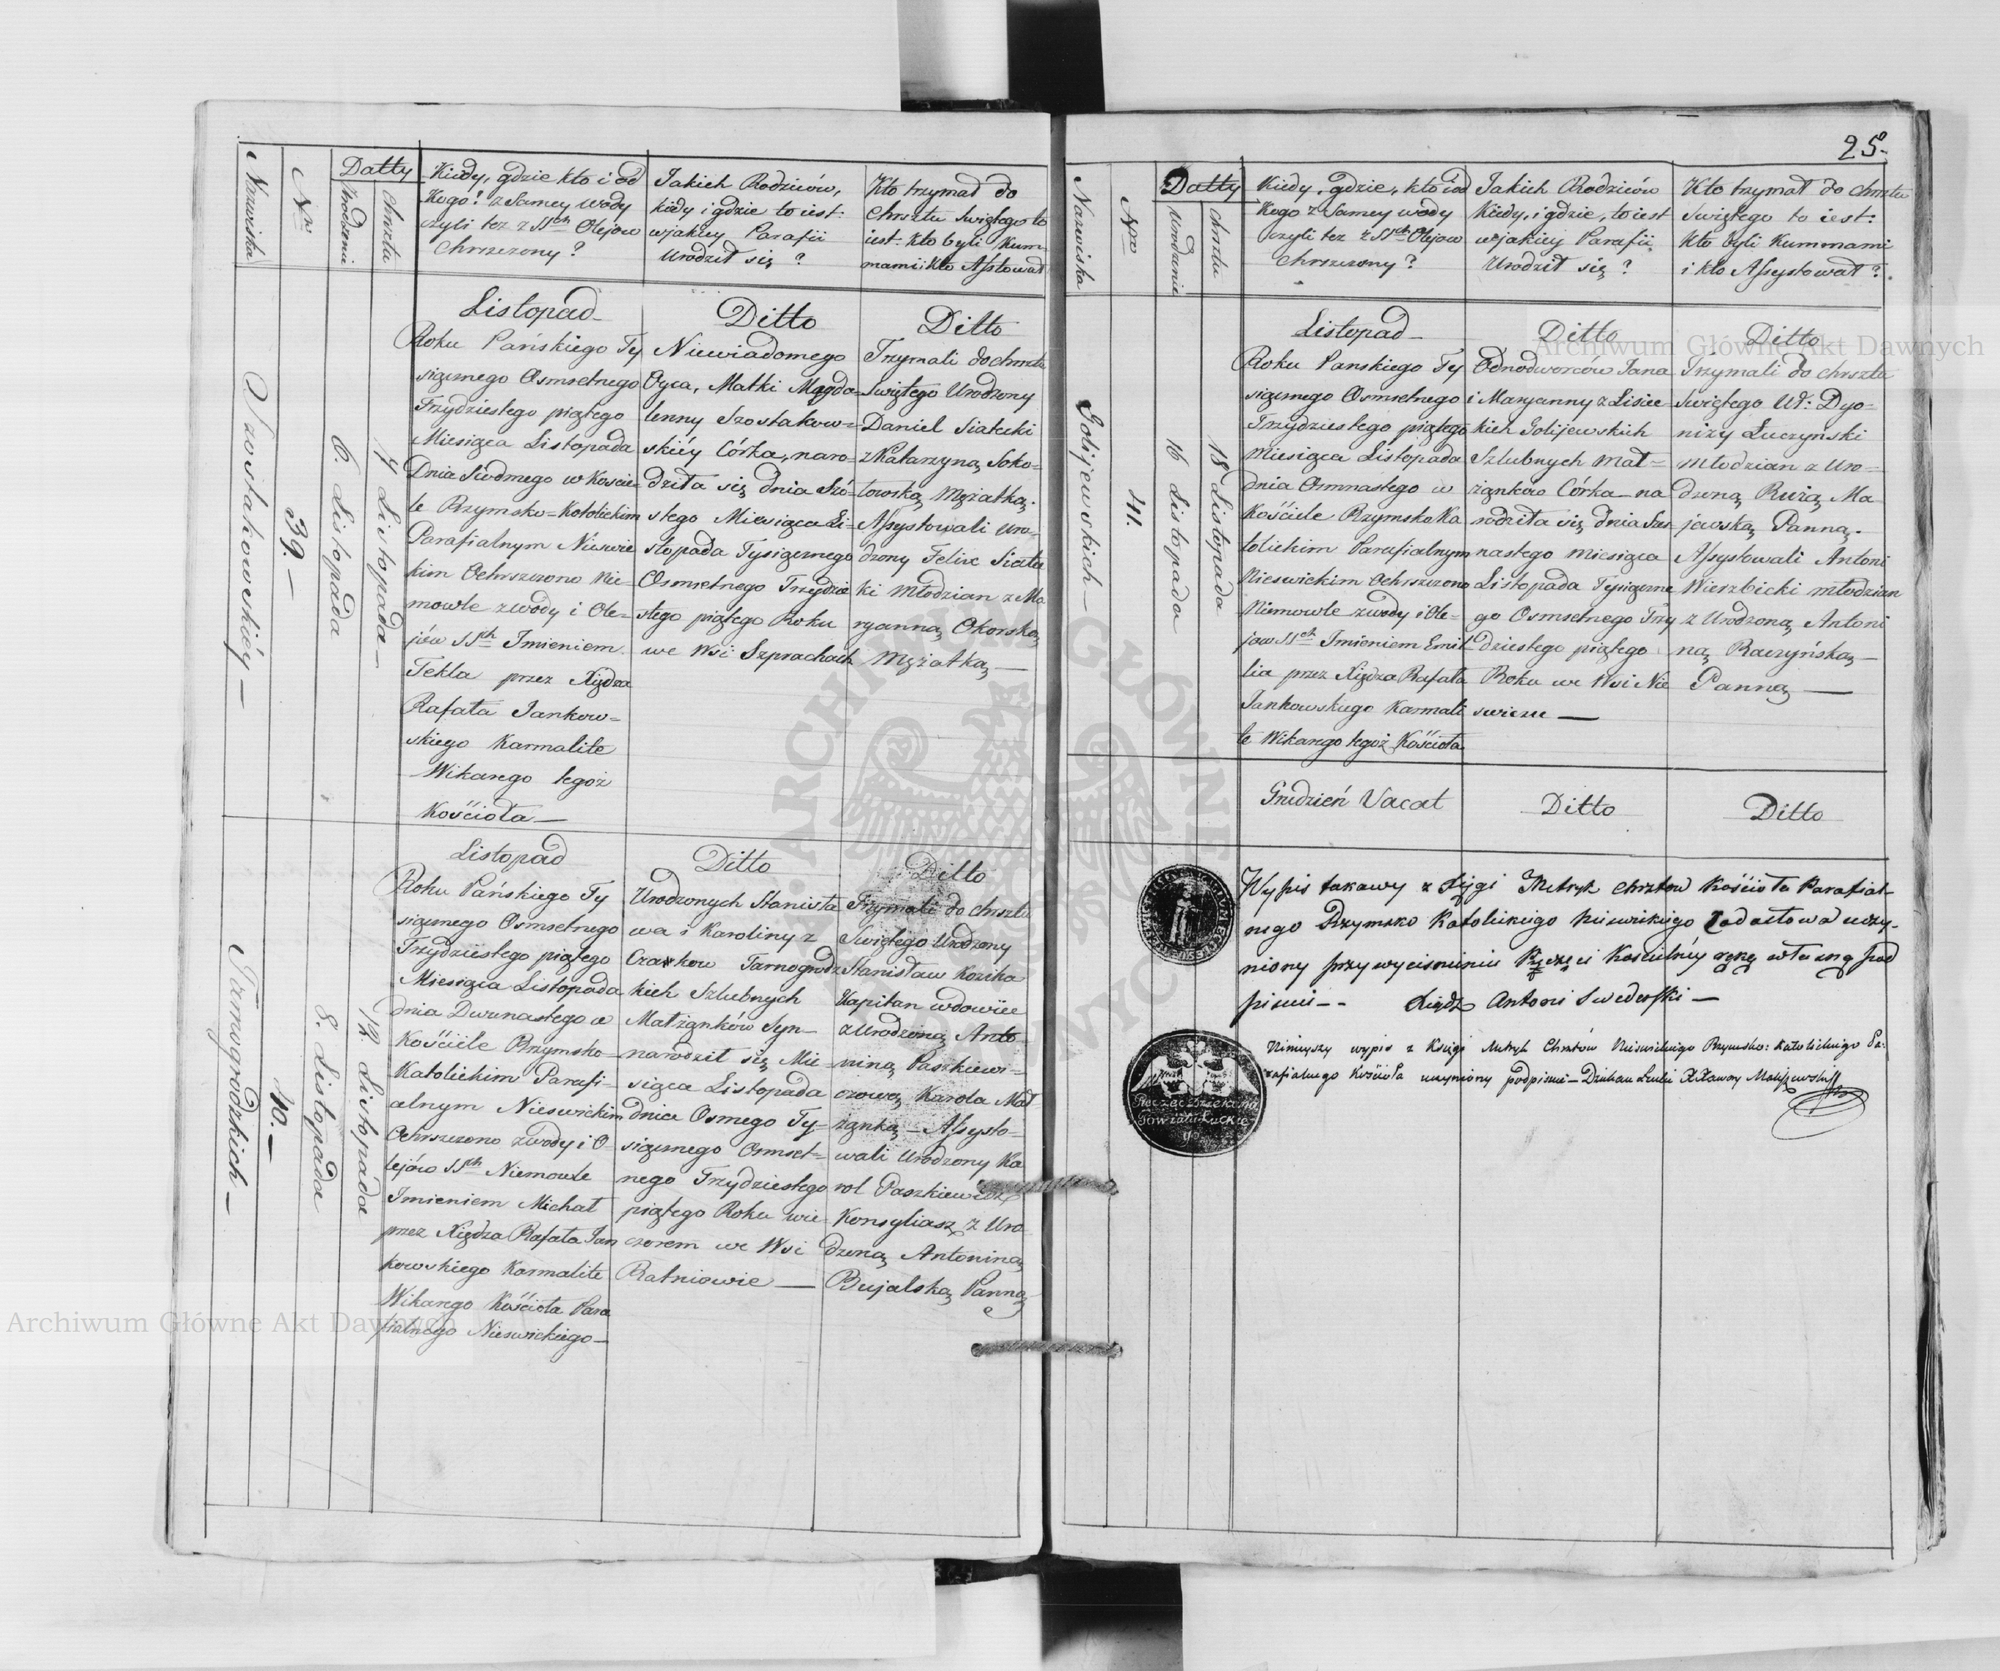 Nazwiska
Nro
Datty
Urodzenie
Chrztu
Kiedy, gdzie kto i od
Kogo? z Samey wody
czyli tez z SSch Olejow
Chrzczony?
Jakich Rodziców,
kiedy i gdzie to iest:
w jakiey Parafii
Urodził się?
Kto trzymał do
Chrsztu Swiętego to
iest: kto byli Kum
mami i kto Assystował
Szostakowskiéy —
39. —
6. Listopada
7 Listopada —
Listopad
Roku Pańskiego Ty
siącznego Osmsetnego
Trzydziestego piątego
Miesiąca Listopada
Dnia Siodmego w Koście
le Rzymsko=Katolickim
Parafialnym Nieswic
kim Ochrszczono Nie=
mowle z wody i Ole=
jów SSch Imieniem
Tekla przez Xiędza
Rafała Jankow=
skiego Karmalite
Wikarego tegoż
Kościoła —
Ditto
Niewiadomego
Oyca, Matki Magda=
lenny Szostakow=
skiéy Córka, naro=
dziła się dnia Szó=
stego Miesiąca Li=
stopada Tysiącznego
Osmsetnego Trzydzie
stego piątego Roku
we Wsi Szprachach
Ditto
Trzymali do chrsztu
Swiętego Urodzony
Daniel Siatecki
z Katarzyną Soko=
łowską Mężatką.
Assystowali Uro=
dzony Felix
ki Młodzian z Ma
ryanną Okorską
Mężatką —
Tarnogrodzkich —
40. —
8. Listopada
12. Listopada
Listopad
Roku Pańskiego Ty
siącznego Osmsetnego
Trzydziestego piątego
Miesiąca Listopada
dnia Dwunastego w
Kościele Rzymsko=
Katolickim Parafi=
alnym Nieswickim
Ochrszczono z wody i O=
lejów SSch Niemowle
Imieniem Michał
przez Xiędza Rafała Jan
kowskiego Karmalite
Wikarego Kościoła Para
fialnego Nieswickiego —
Ditto
Urodzonych Stanisła
wa i Karoliny z
Tarnogrodz
kich Szlubnych
Małżonków Syn—
narodził się Mie=
siąca Listopada
dnia Osmego Ty=
siącznego Osmset=
nego Trzydziestego
piątego Roku wie=
czorem we Wsi
Ratniowie —
Ditto
Trzymali do chrsztu
Swiętego Urodzony
Stanisław Kozika
Kapitan wdowiec
z Urodzoną Anto
niną Paszkiewi=
czową Karola Mał
żonką — Assysto=
wali Urodzony Ka
rol Paszkiewicz
Konsyliasz z Uro
dzoną Antoniną
Bujalską Panną
25.
Nazwiska
Nro
Datty
Urodzenie
Chrztu
Kiedy, gdzie, kto i od
Kogo z Samey wody
czyli tez z SSch Olejow
Chrzczony?
Jakich Rodziców
Kiedy, i gdzie, to iest
w jakiey Parafii
Urodził się?
Kto trzymał do Chrztu
Swiętego to iest:
Kto byli Kummami
i kto Assystował?
Golijewskich —
41.
16 Listopada
18 Listopada
Listopad
Roku Panskiego Ty
siącznego Osmsetnego
Trzydziestego piątego
Miesiąca Listopada
dnia Osmnastego w
Kościele Rzymsko Ka
tolickim Parafialnym
Nieswickim Ochrszczono
Niemowle z wody i Ole=
jow SSch Imieniem Emi
lia przez Xiędza Rafała
Jankowskiego Karmali
te Wikarego tegoż Kościoła
Ditto
Odnodworców Jana
i Maryanny z Lisiec
kich Golijewskich
Szlubnych Mał=
żonków Córka—na
rodziła się dnia Szes
nastego Miesiąca
Listopada Tysiączne
go Osmsetnego Trzy
dziestego piątego
Roku we Wsi Nie
swiczu —
Ditto
Trzymali do chrsztu
Swiętego Ur: Dyo=
nizy Łuczyński
Młodzian z Uro=
dzoną Ruzą Ma
jewską Panną.
Assystowali Antoni
Wierzbicki młodzian
z Urodzoną Antoni
ną Raczyńską —
Panną —
Grudzień Vacat
Ditto
Ditto
Wypis takowy z Xięgi Metryk chrztow Kościoła Parafial-
nego Rzymsko Katolickiego Nieswickiego uczy-
niony przy wycisnieniu Pieczęci Kościelnéy ręką własną pod
pisuie — Xiądz Antoni Swederski —
Ninieyszy wypis z Księgi Metryk Chrztów Nieswickiego Rzymsko: Katolickiego Pa:
rafialnego Kościoła uczyniony podpisuie — Dziekan Łucki X Xawery
Archiwum Główne Akt Dawnych
Archiwum Główne Akt Dawnych